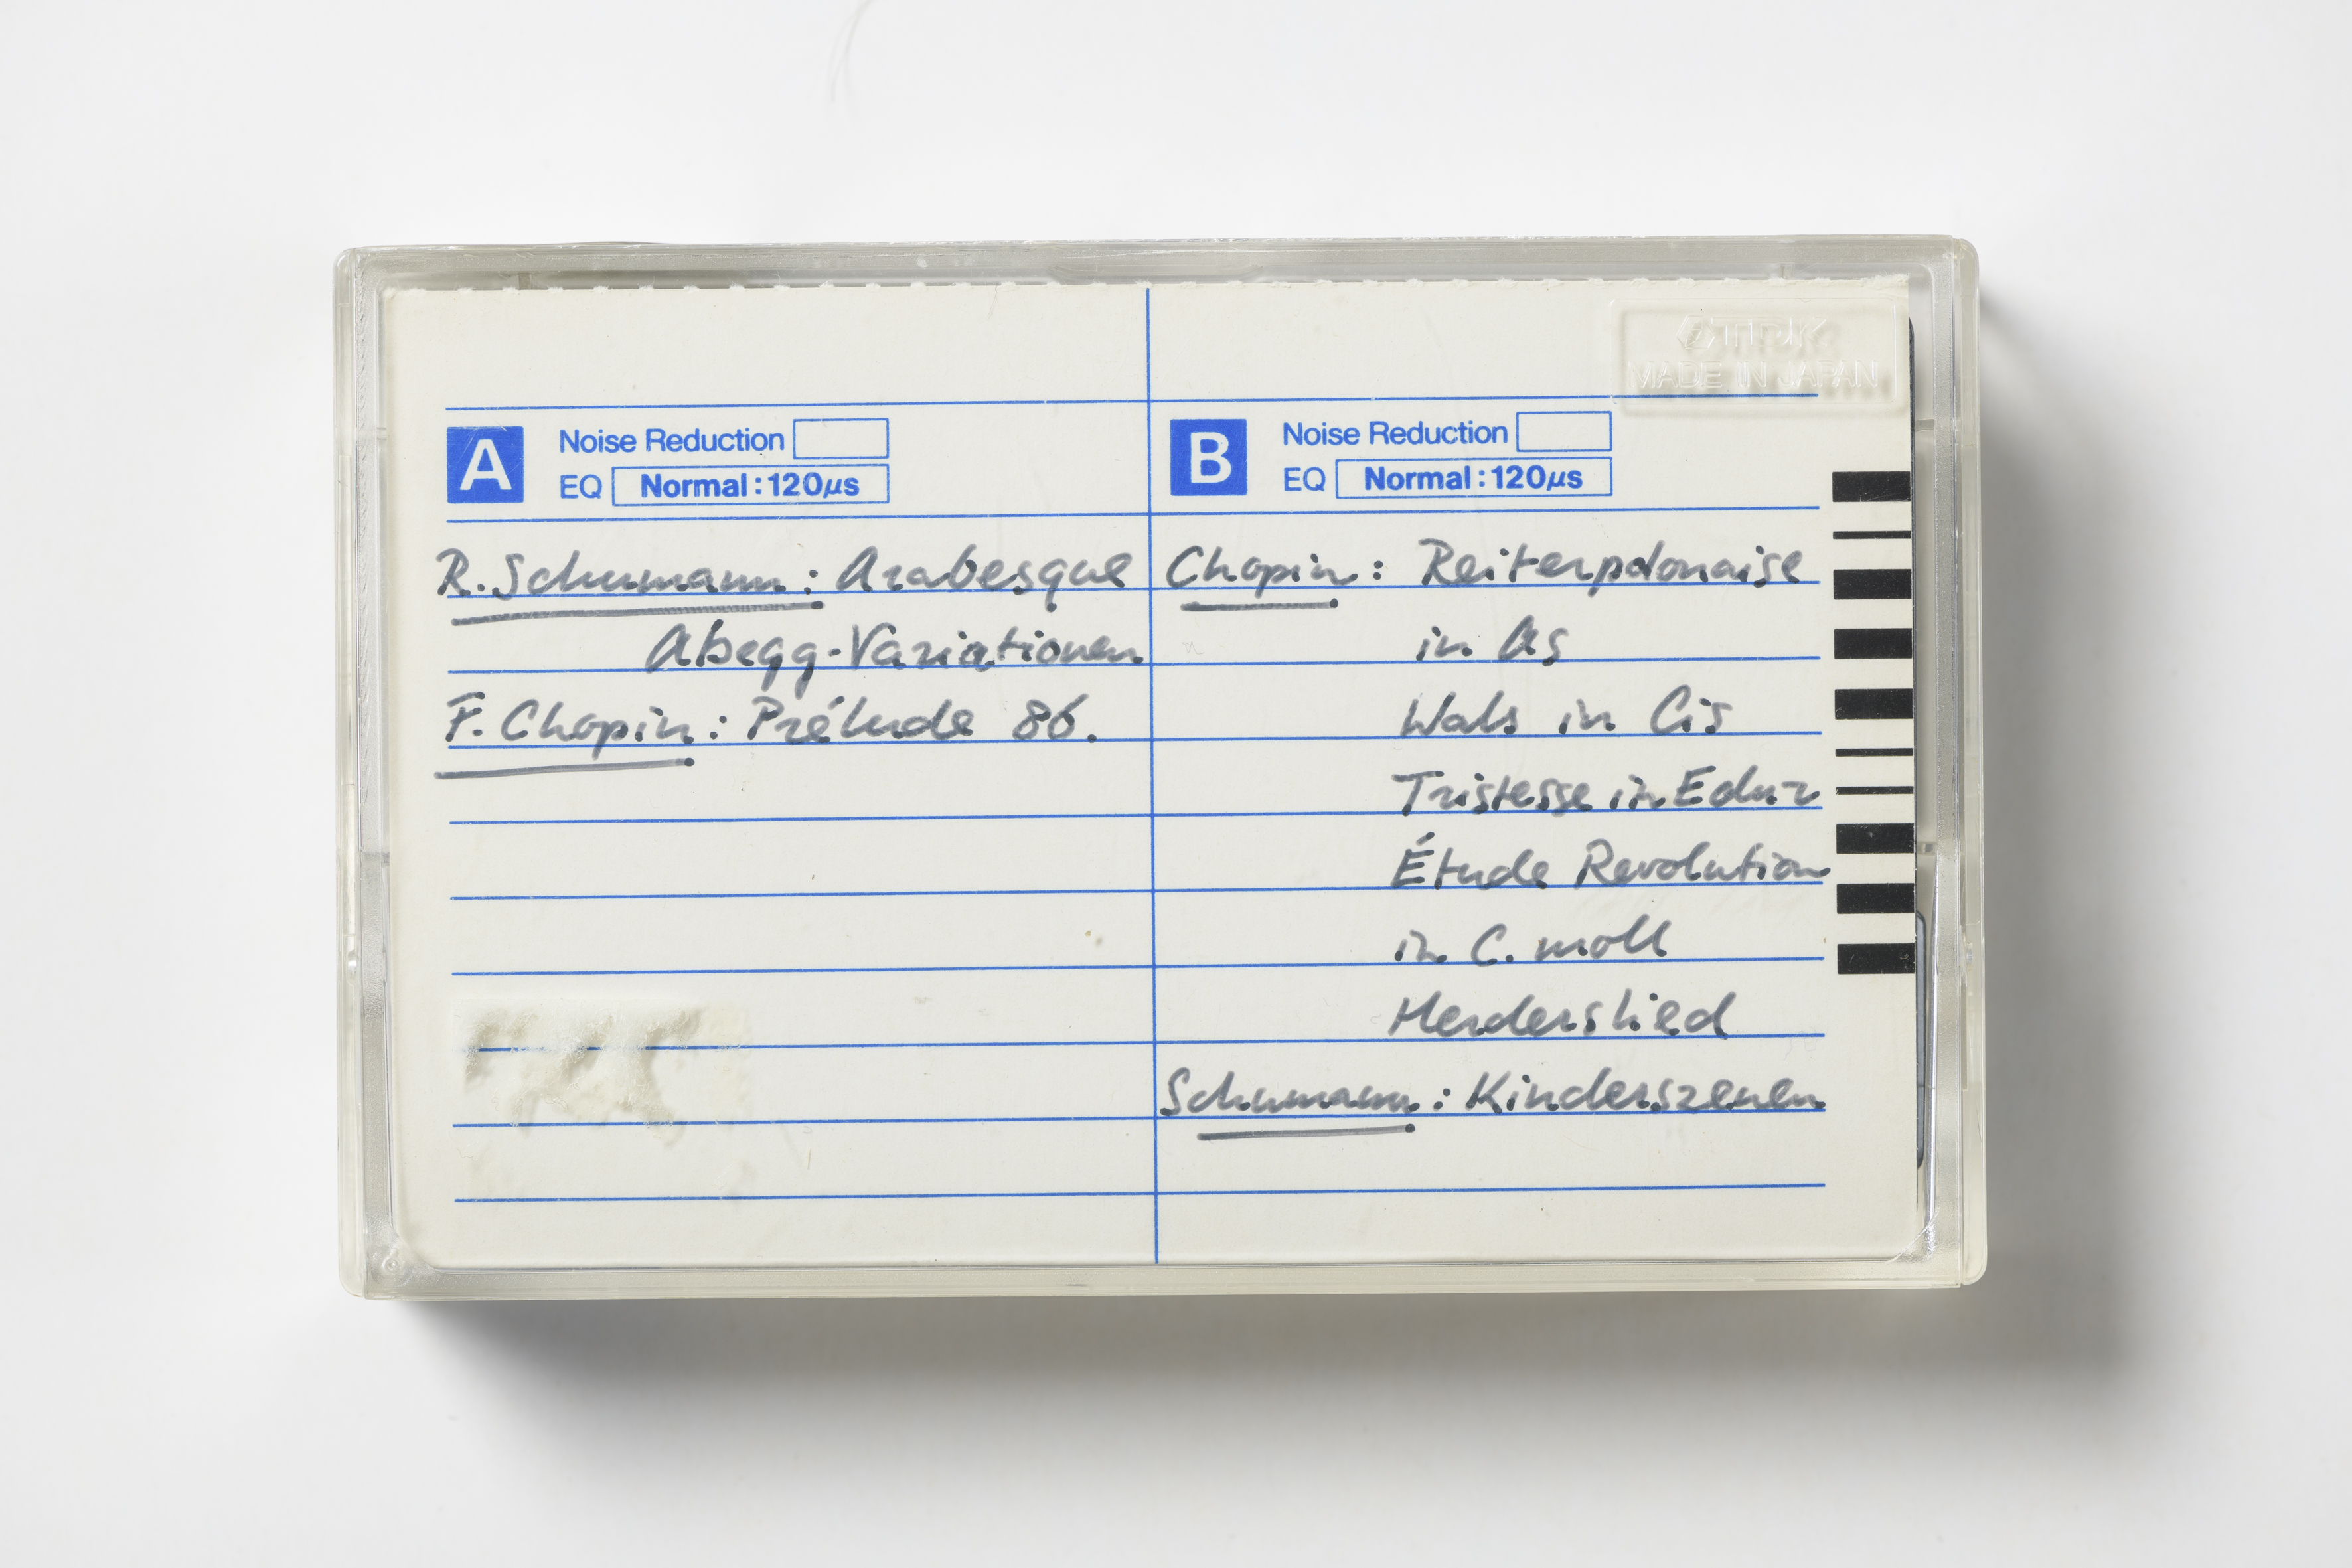 TDK
MADE IN JAPAN
A
Noise Reduction
EQ Normal:120μs
R. Schumann: Arabesque
Abegg-Variationen
F. Chopin: Prélude 86.
B
Noise Reduction
EQ Normal:120μs
Chopin: Reiterpolonaise
in As
Wals in Cis
Tristesse in Edur
Étude Revolution
in C. moll
Herderslied
Schumann: Kinderszenen